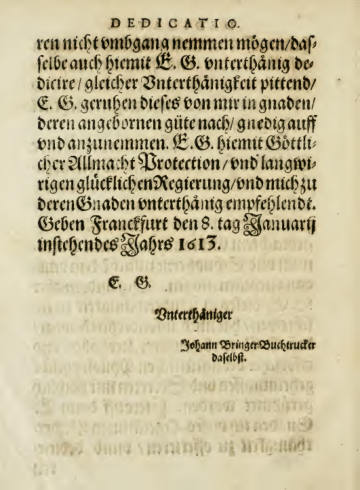 DEDICATIO.
ren nicht vmbgang nemmen mögen/das-
selbe auch hiemit E. G. vnterthänig de-
dicire/gleicher Vnterthänigkeit pittend/
E. G. geruhen dieses von mir in gnaden/
deren angebornen güte nach/gnedig auff
vnd anzunemmen. E. G. hiemit Göttli-
cher Allmacht Protection/vnd langwi-
rigen glücklichen Regierung/vnd mich zu
deren Gnaden vnterthänig empfehlendt.
Geben Franckfurt den 8. tag Januarij
instehendes Jahrs 1613.
E. G.
Vnterthäniger
Johann Bringer Buchtrucker
daselbst.